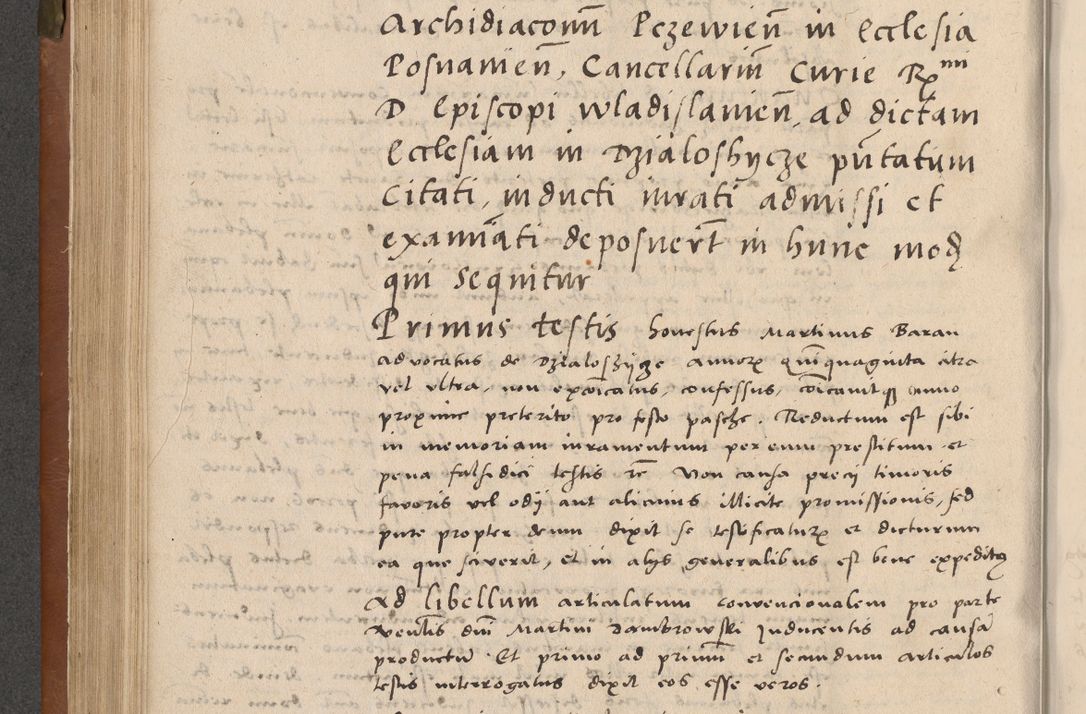 Archidiaconū Pczewień in Ecclesia
Posnanień, Cancellariū Curie Rmi
D Episcopi Wladislavień, ad dictam
Ecclesiam in Dzialoshycze pn̄tatum
Citati, inducti iurati admissi et
examinati deposuerūt in hunc modū
qui sequitur
Primus testis honestus Martinus Baran
advocatus de Dzialoszÿcze annorū quinquaginta citra
vel ultra, non excōicatus, confessus, cōicavit anno
proxime preterito pro festo pasche. Reductum est sibi
in memoriam iuramentum per eum prestitum et
pena falsidici testis rē Non causa precij timoris
favoris vel odij aut alicuius illicite promissionis, sed
pure propter deum dixit se testificaturū et dicturum
ea que sciverit, et in alijs generalibus est bene expeditus
Ad libellum articulatum convencionalem pro parte
Venlis dni Martini Dambrowski Inducentis ad causā
productū Et primo ad primū et secundum articulos
testis interrogatus dixit eos esse veros.